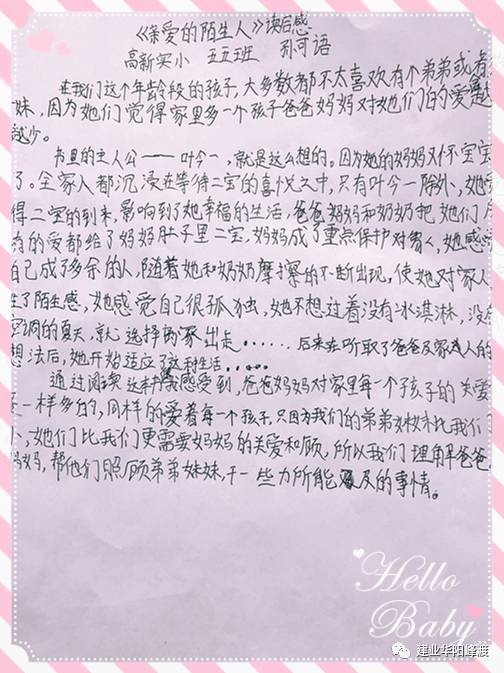 《亲爱的陌生人》读后感
高新实小 五五班 孙可语
在我们这个年龄段的孩子,大多数都不太喜欢有个弟弟或者
妹,因为她们觉得家里多一个孩子爸爸妈妈对她们的爱越
越少。
书里的主人公——叶今一,就是这么想的。因为她的妈妈又怀宝宝
了。全家人都沉浸在等待二宝的喜悦之中,只有叶今一除外,她
得二宝的到来,影响到了她幸福的生活,爸爸妈妈和奶奶把她们
的爱都给了妈妈肚子里二宝,妈妈成了重点保护对象,她感觉
自己成了多余的人,随着她和奶奶摩擦的不断出现,使她对家人
生了陌生感,她感觉自己很孤独,她不想过着没有冰淇淋,没
空调的夏天,就选择离家出走...... 后来在听取了爸爸及家人的
想法后,她开始适应了这种生活......
通过阅读这本书我感受到,爸爸妈妈对家里每一个孩子的关爱
是一样多的,同样的爱着每一个孩子,只因为我们的弟弟妹妹比我们
小,她们比我们更需要妈妈的关爱和顾,所以我们理解爸爸
妈妈,帮他们照顾弟弟妹妹,干一些力所能及的事情。
Hello
Baby
建业华阳峰渡